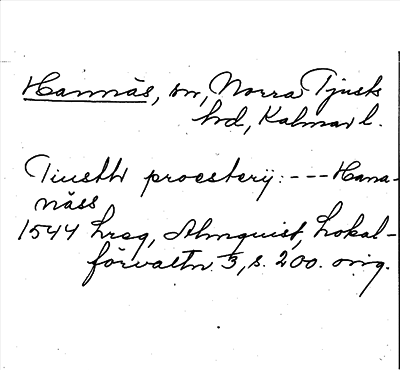 Hannäs, sn, Norra Tjusts
hd, Kalmar l.
Tiusthr proesterij: --- Hana-
näss
1544 hreg, Almquist, Lokal-
förvaltn 3, s. 200. orig.